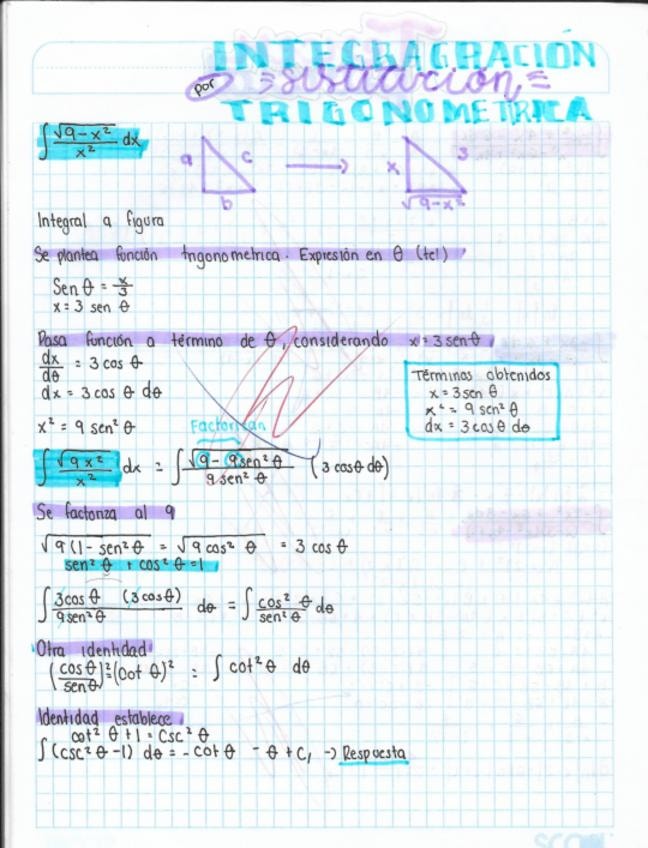 INTEGRAGRACIÓN
por sustitución
TRIGONOMETRICA
∫ √9-x² / x² dx
a c b → x 3 √9-x²
Integral a figura
Se plantea función trigonometrica. Expresión en θ (tel)
Sen θ = x/3
x = 3 sen θ
Pasa función a término de θ, considerando x = 3 sen θ
dx/dθ = 3 cos θ
dx = 3 cos θ dθ
x² = 9 sen² θ
Términos obtenidos
x = 3 sen θ
x² = 9 sen² θ
dx = 3 cos θ dθ
Factorizan
∫ √9x² / x² dx = ∫ √9 - 9sen² θ / 9 sen² θ (3 cos θ dθ)
Se factoriza al 9
√9(1 - sen² θ = √9 cos² θ = 3 cos θ
sen² θ + cos² θ = 1
∫ 3cos θ (3cos θ) / 9sen² θ dθ = ∫ cos² θ / sen² θ dθ
Otra identidad
(cos θ / sen θ)² = (Cot θ)² = ∫ cot² θ dθ
Identidad establece
cot² θ + 1 = Csc² θ
∫ (csc² θ - 1) dθ = - cot θ - θ + C, → Respuesta